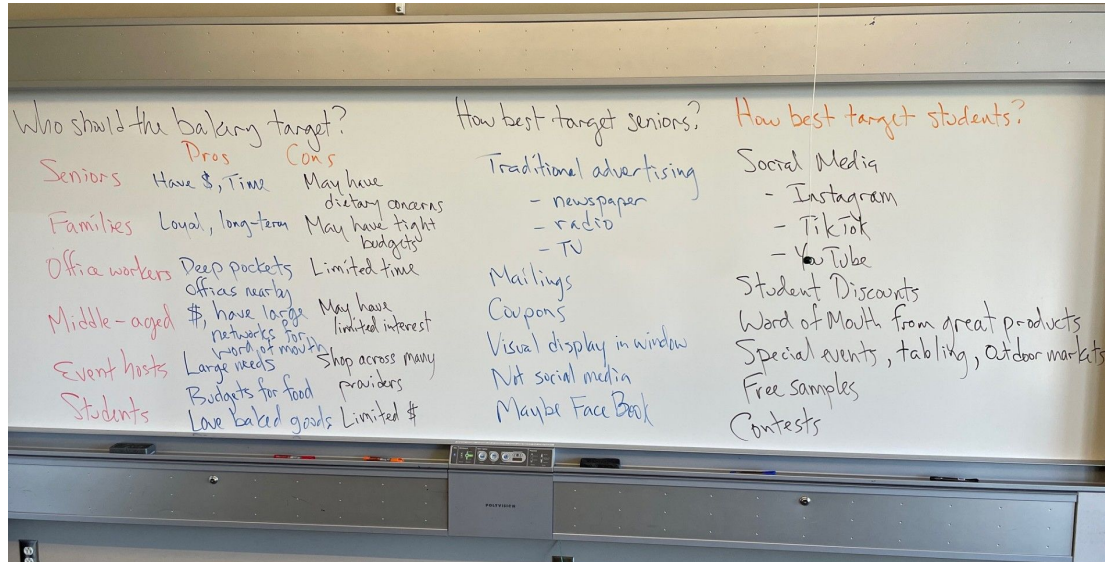 Who should the bakery target?
Pros Cons
Seniors Have $, Time May have
dietary concerns
Families Loyal, long-term May have tight
budgets
Office workers Deep pockets Limited time
Offices nearby
Middle-aged $, have large May have
networks for limited interest
word of mouth
Event hosts Large needs Shop across many
Budgets for food providers
Students Love baked goods Limited $
How best target seniors?
Traditional advertising
- newspaper
- radio
- TV
Mailings
Coupons
Visual display in window
Not social media
Maybe Face Book
How best target students?
Social Media
- Instagram
- TikTok
- YouTube
Student Discounts
Word of Mouth from great products
Special events, tabling, Outdoor markets
Free samples
Contests
POLYVISION